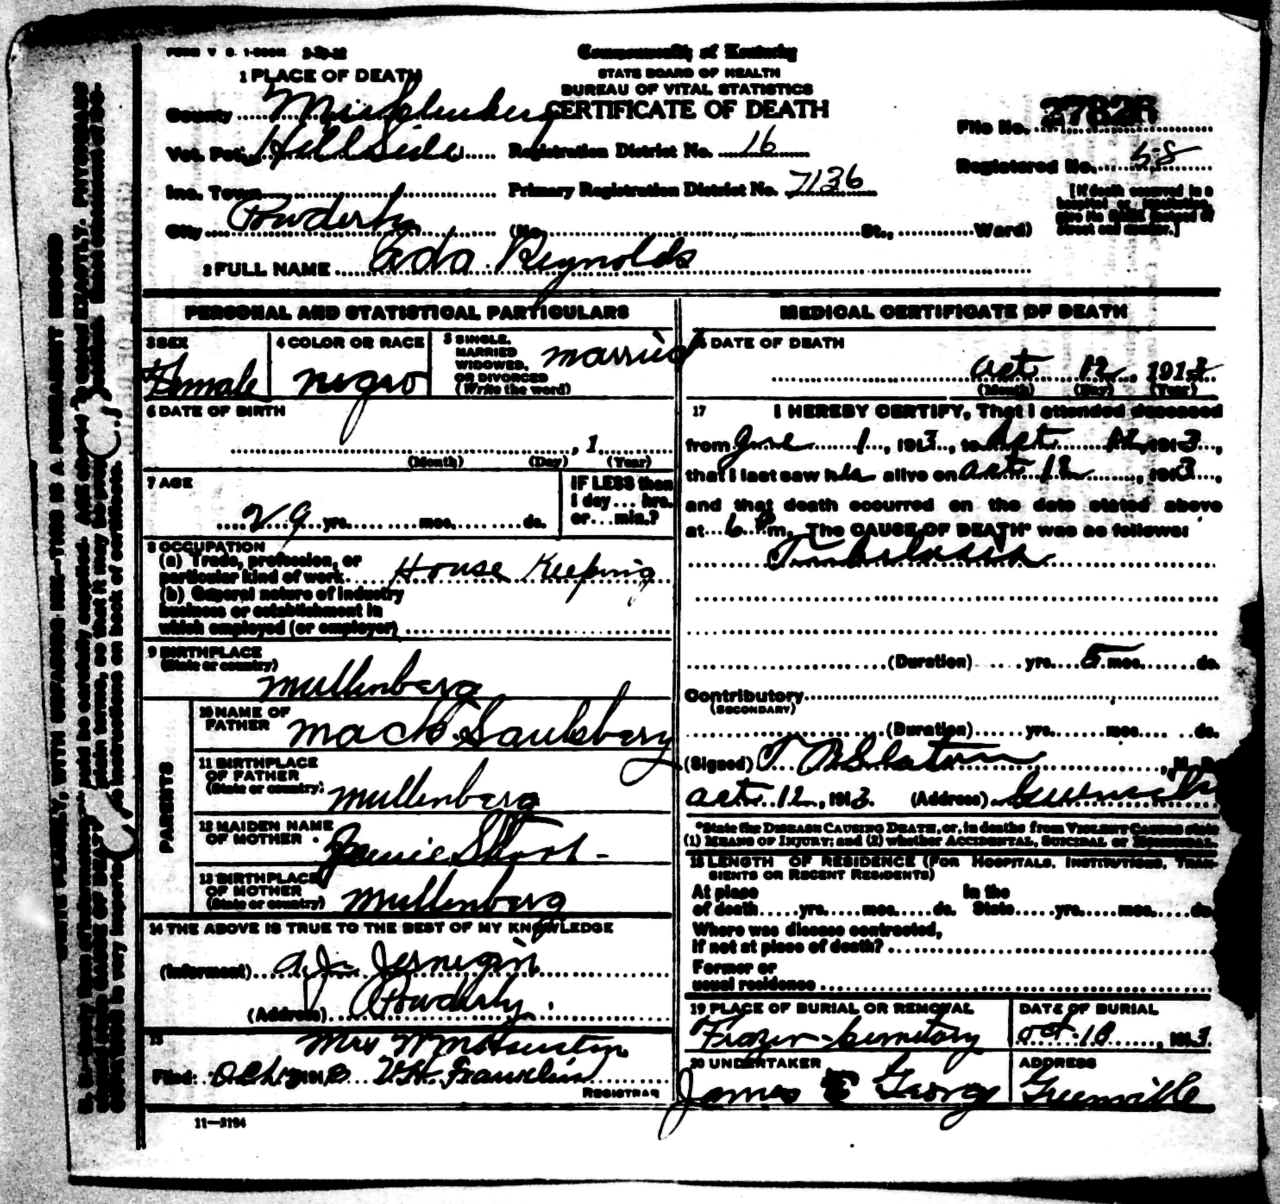 FORM V. S. 1-
Commonwealth of Kentucky
STATE BOARD OF HEALTH
BUREAU OF VITAL STATISTICS
CERTIFICATE OF DEATH
1 PLACE OF DEATH
County Muhlenberg
Vot. Pct. Hillside Registration District No. 16
File No. 27826
Registered No. 58
Inc. Town Primary Registration District No. 7136
[If death occurred in a
hospital or institution,
give its NAME instead of
street and number.]
City Powderly (No. St., Ward)
2 FULL NAME Ada Reynolds
PERSONAL AND STATISTICAL PARTICULARS
3 SEX
Female
4 COLOR OR RACE
negro
5 SINGLE,
MARRIED
WIDOWED,
OR DIVORCED
(Write the word)
married
6 DATE OF BIRTH
, 1
(Month) (Day) (Year)
7 AGE
29 yrs. mos. ds.
IF LESS than
1 day ... hrs.
or ... min.?
8 OCCUPATION
(a) Trade, profession, or
particular kind of work House Keeping
(b) General nature of industry
business or establishment in
which employed (or employer)
9 BIRTHPLACE
(State or country)
Mullenberg
PARENTS
10 NAME OF
FATHER
Mack Saulsbery
11 BIRTHPLACE
OF FATHER
(State or country)
Mullenberg
12 MAIDEN NAME
OF MOTHER
Short
13 BIRTHPLACE
OF MOTHER
(State or country)
Mullenberg
14 THE ABOVE IS TRUE TO THE BEST OF MY KNOWLEDGE
(Informant) A.J. Jernegin
(Address) Powderly.
15
Mrs Wm
Filed V.H. Franklin
REGISTRAR
11—3194
MEDICAL CERTIFICATE OF DEATH
16 DATE OF DEATH
Oct 12, 1913
(Month) (Day) (Year)
17 I HEREBY CERTIFY, That I attended deceased
from June 1, 1913, to Oct 12, 1913,
that I last saw her alive on Oct 12, 1913,
and that death occurred on the date stated above
at 6 P m. The CAUSE OF DEATH* was as follows:
(Duration) yrs. 5 mos. ds.
Contributory
(SECONDARY)
(Duration) yrs. mos. ds.
(Signed) T. B. Slaton, M. D.
Oct 12, 1913. (Address) Greenville
*State the DISEASE CAUSING DEATH, or, in deaths from VIOLENT CAUSES state
(1) MEANS OF INJURY; and (2) whether ACCIDENTAL, SUICIDAL or HOMICIDAL.
18 LENGTH OF RESIDENCE (FOR HOSPITALS, INSTITUTIONS, TRAN-
SIENTS OR RECENT RESIDENTS)
At place In the
of death yrs. mos. ds. State yrs. mos. ds.
Where was disease contracted,
if not at place of death?
Former or
usual residence
19 PLACE OF BURIAL OR REMOVAL
Frazer Cemetery
DATE OF BURIAL
Oct. 13, 1913.
20 UNDERTAKER
James E George
ADDRESS
Greenville